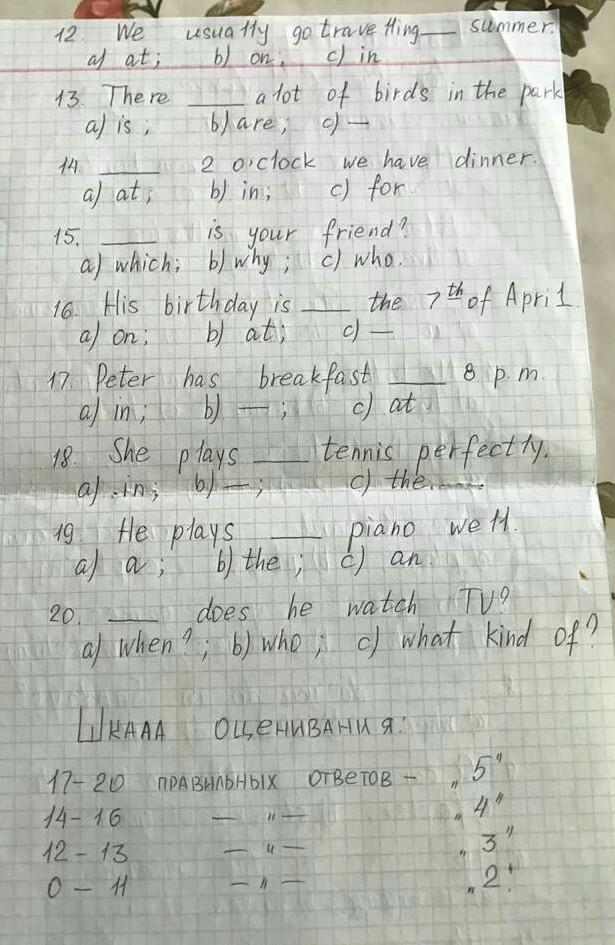 12. We usually go travelling ___ summer.
a) at; b) on; c) in
13. There ___ a lot of birds in the park
a) is; b) are; c) —
14. ___ 2 o'clock we have dinner.
a) at; b) in; c) for.
15. ___ is your friend?
a) which; b) why; c) who.
16. His birthday is ___ the 7th of April.
a) on; b) at; c) —
17. Peter has breakfast ___ 8 p.m.
a) in; b) —; c) at.
18. She plays ___ tennis perfectly.
a) in; b) —; c) the
19. He plays ___ piano well.
a) a; b) the; c) an.
20. ___ does he watch TV?
a) when?; b) who; c) what kind of?
Шкала оценивания:
17-20 правильных ответов – „5"
14-16 — „ — „4"
12-13 — „ — „3"
0-11 — „ — „2".